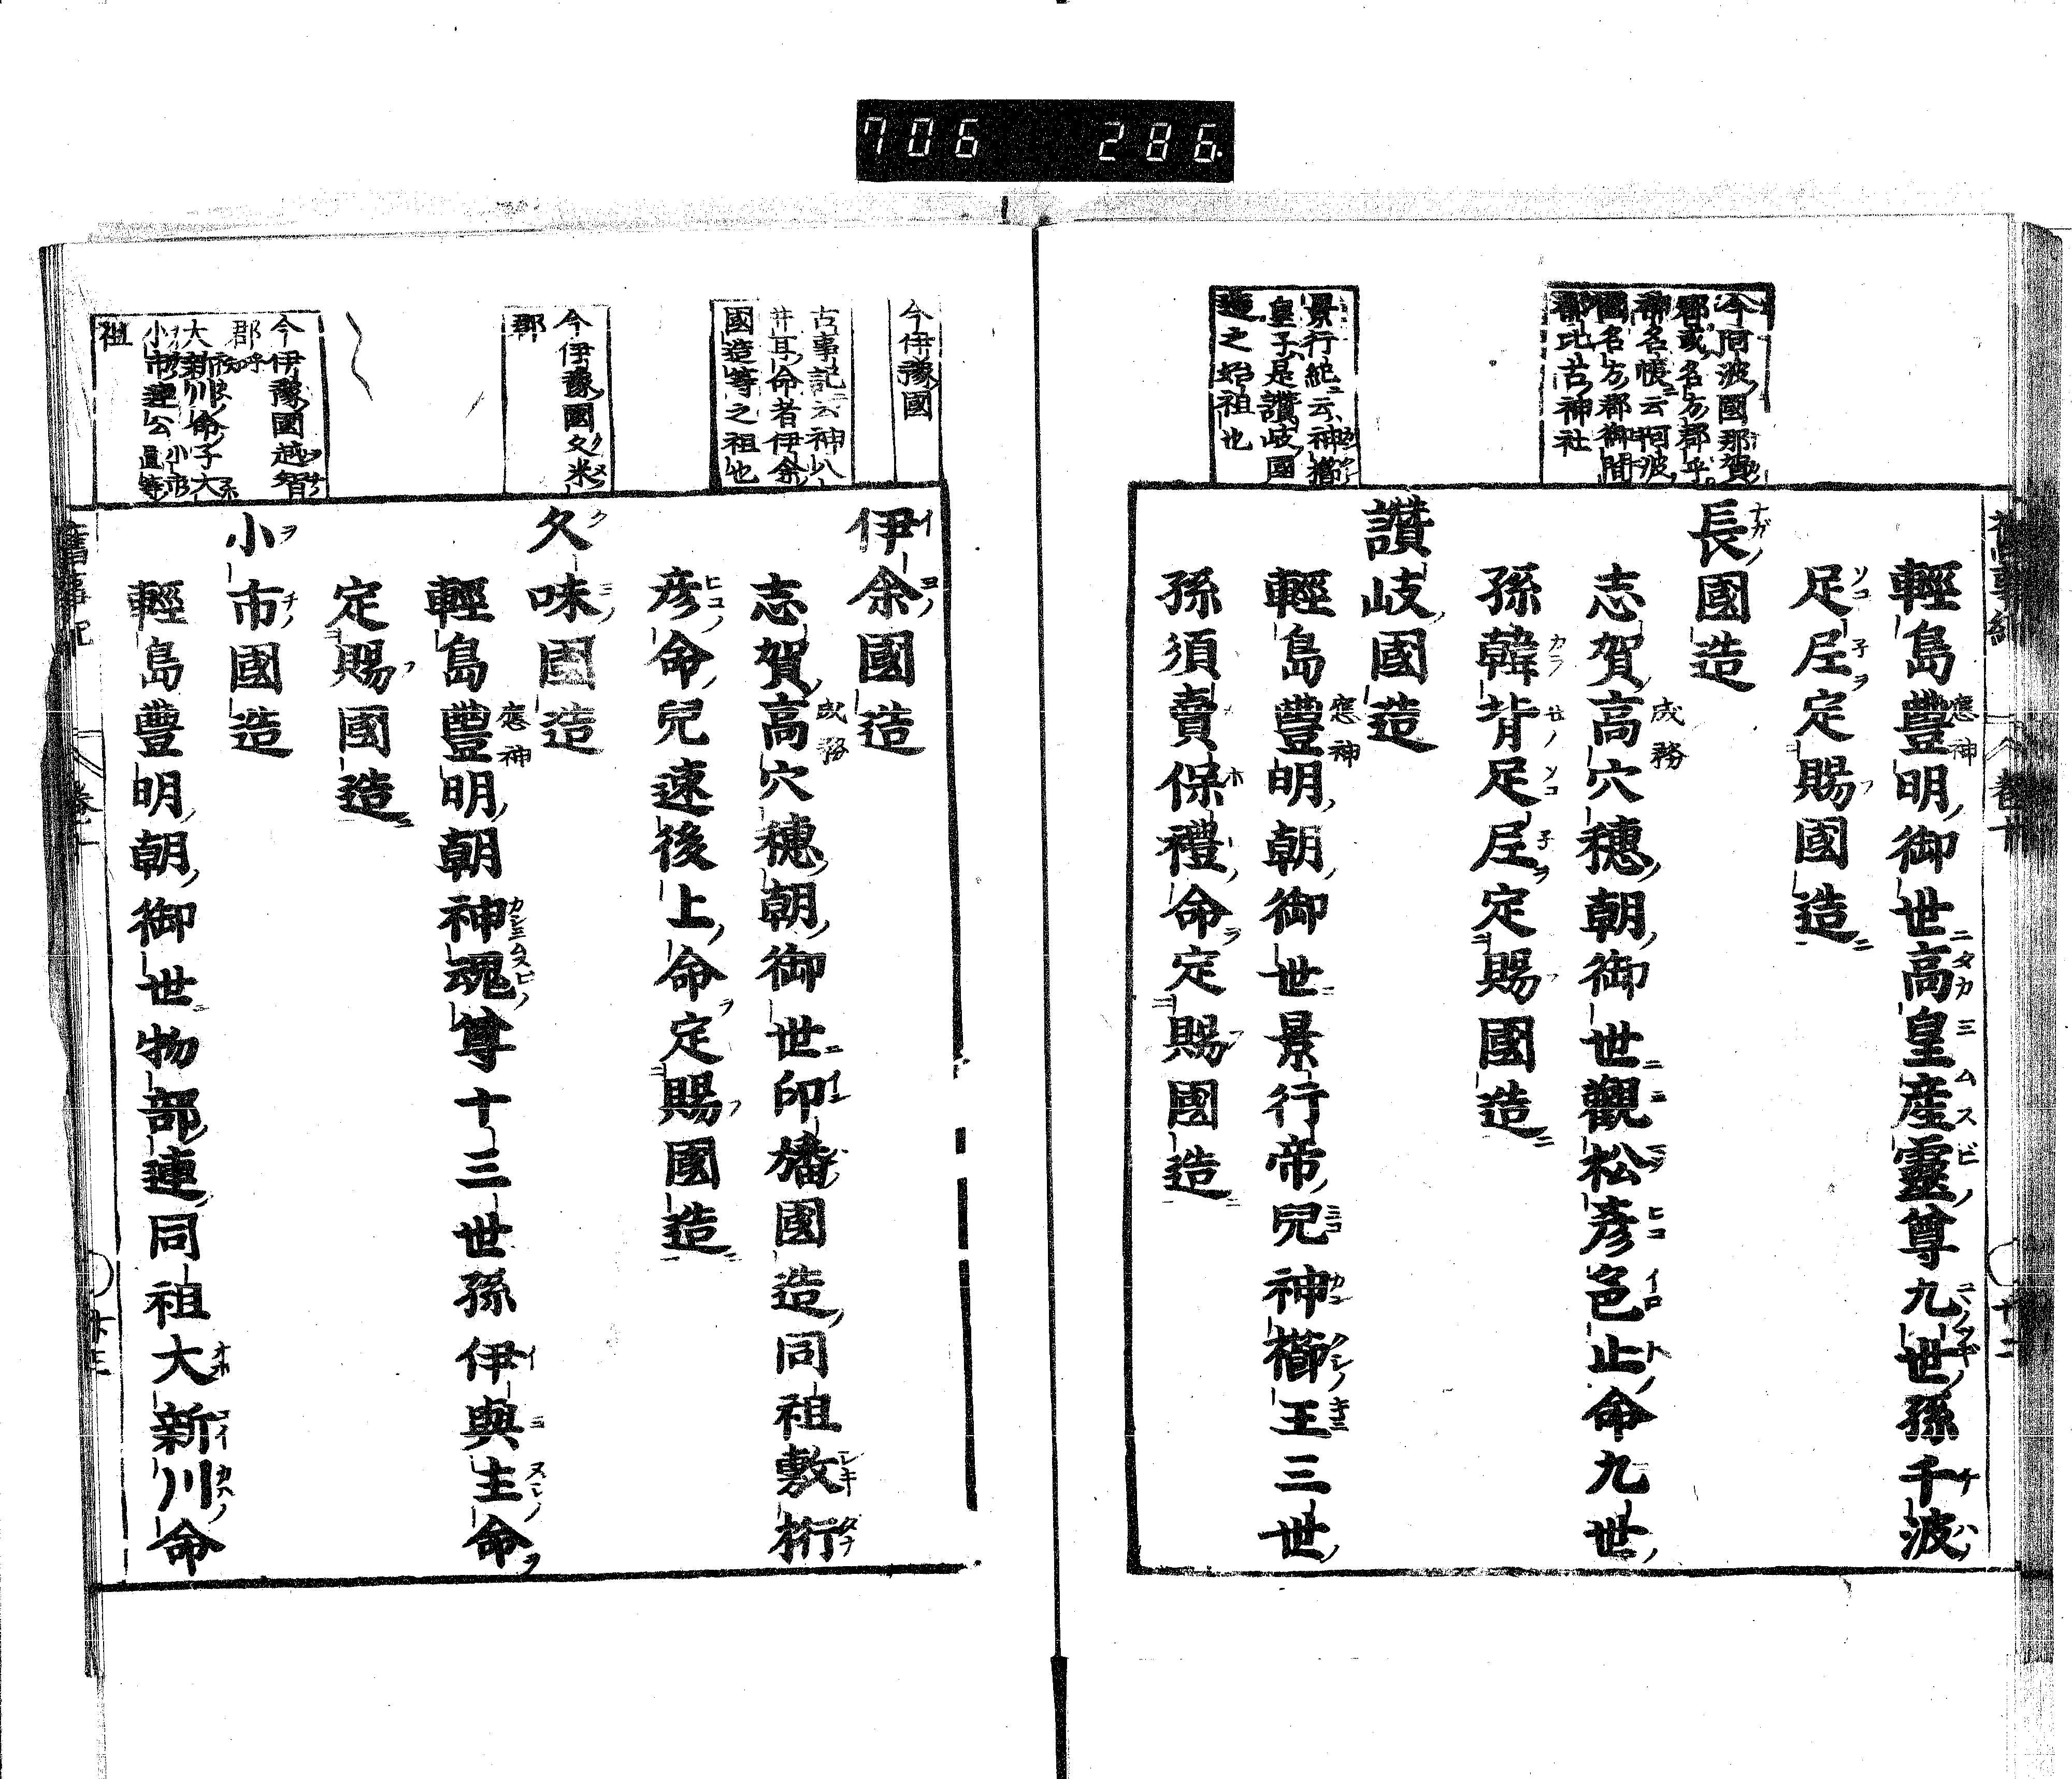 706 286
今阿波國那賀
郡或名方郡乎
神名帳云阿波
國名方郡御間
都比古神社
景行紀云神櫛
皇子是讃岐國
造之始祖也
輕島豐明御世高皇産靈尊九世孫千波
應神
足尼定賜國造
長國造
志賀高穴穗朝御世觀松彦色止命九世
成務
孫韓背足尼定賜國造
讃岐國造
輕島豐明朝御世景行帝兒神櫛王三世
應神
孫須賣保禮命定賜國造
今伊豫國
古事記云神八
井耳命者伊余
國造等之祖也
今伊豫國久米
郡
今伊豫國越智
郡
大新川命子大
小市連公小市
祖
伊余國造
志賀高穴穗朝御世印旛國造同祖敷桁
成務
彦命兒速後上命定賜國造
久味國造
輕島豐明朝神魂尊十三世孫伊與主命
應神
定賜國造
小市國造
輕島豐明朝御世物部連同祖大新川命